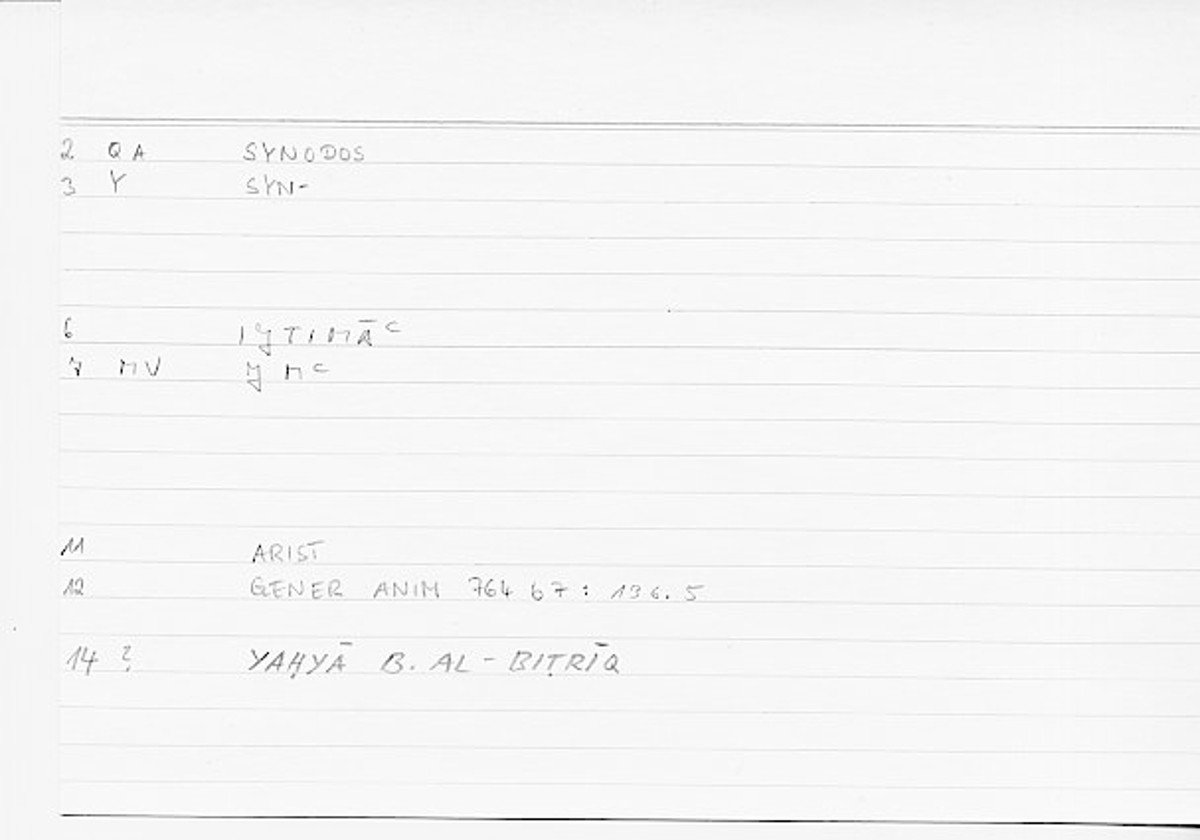 2 QA SYNODOS
3 Y SYN-
6 IǦTIMĀʿ
7 MV ǦMʿ
11 ARIST
12 GENER ANIM 764 b7: 136.5
14 ? YAḤYĀ B. AL-BIṬRĪQ